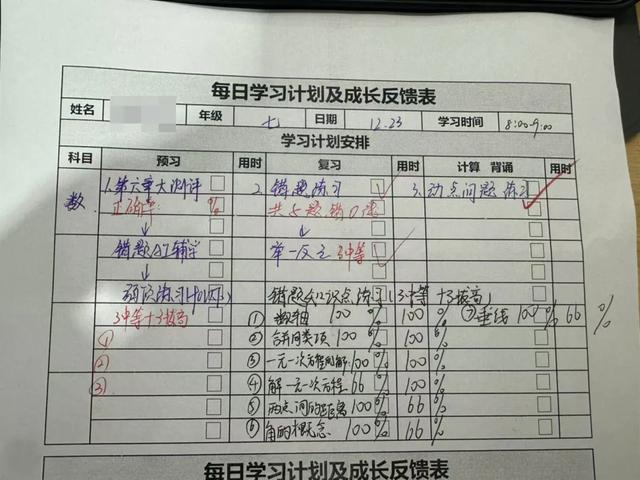 每日学习计划及成长反馈表
姓名 年级 七 日期 12.23 学习时间 8:00-9:00
学习计划安排
科目 预习 用时 复习 用时 计算 背诵 用时
数 1.第六章大测评 2.错题练习 3.动点问题练习
正确率: % 共5题错0题
↓ ↓
错题AI辅学 举一反三3中等
↓ ↓
错题知识点练习(3中等+3拔高)
3中等+3拔高 ①数轴 100% 100% ⑦垂线 100% 66%
① ②合并同类项 100% 100%
② ③一元一次方程的解 100% 100%
③ ④解一元一次方程 66% 100%
⑤两点间的距离 100% 66%
⑥角的概念 100% 66%
每日学习计划及成长反馈表